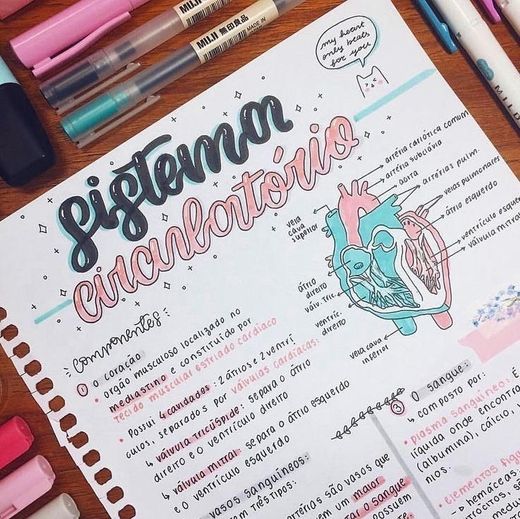 MUJI 無印良品
MUJI 無印良品
MILD
my heart
only beats
for you
sistema
circulatório
artéria carótica comum
artéria subclávia
aorta
artérias pulm.
veias pulmonares
átrio esquerdo
ventrículo esquerdo
válvula mitral
veia
cava
superior
átrio
direito
válv. tric.
ventríc.
direito
veia cava
inferior
Componentes
① O CORAÇÃO
• órgão musculoso localizado no
mediastino e constituído por
tecido muscular estriado cardíaco
• Possui 4 cavidades: 2 átrios e 2 ventrí
culos, separados por válvulas cardíacas:
↳ válvula tricúspide: separa o átrio
direito e o ventrículo direito
↳ válvula mitral: separa o átrio esquerdo
e o ventrículo esquerdo
VASOS SANGUÍNEOS:
EM TRÊS TIPOS:
artérias são vasos que
um maior
o sangue
possuem
③ O SANGUE:
• composto por:
• plasma sanguíneo:
líquido onde encontra
(albumina), cálcio,
nios.
• elementos figu
↳ hemácias